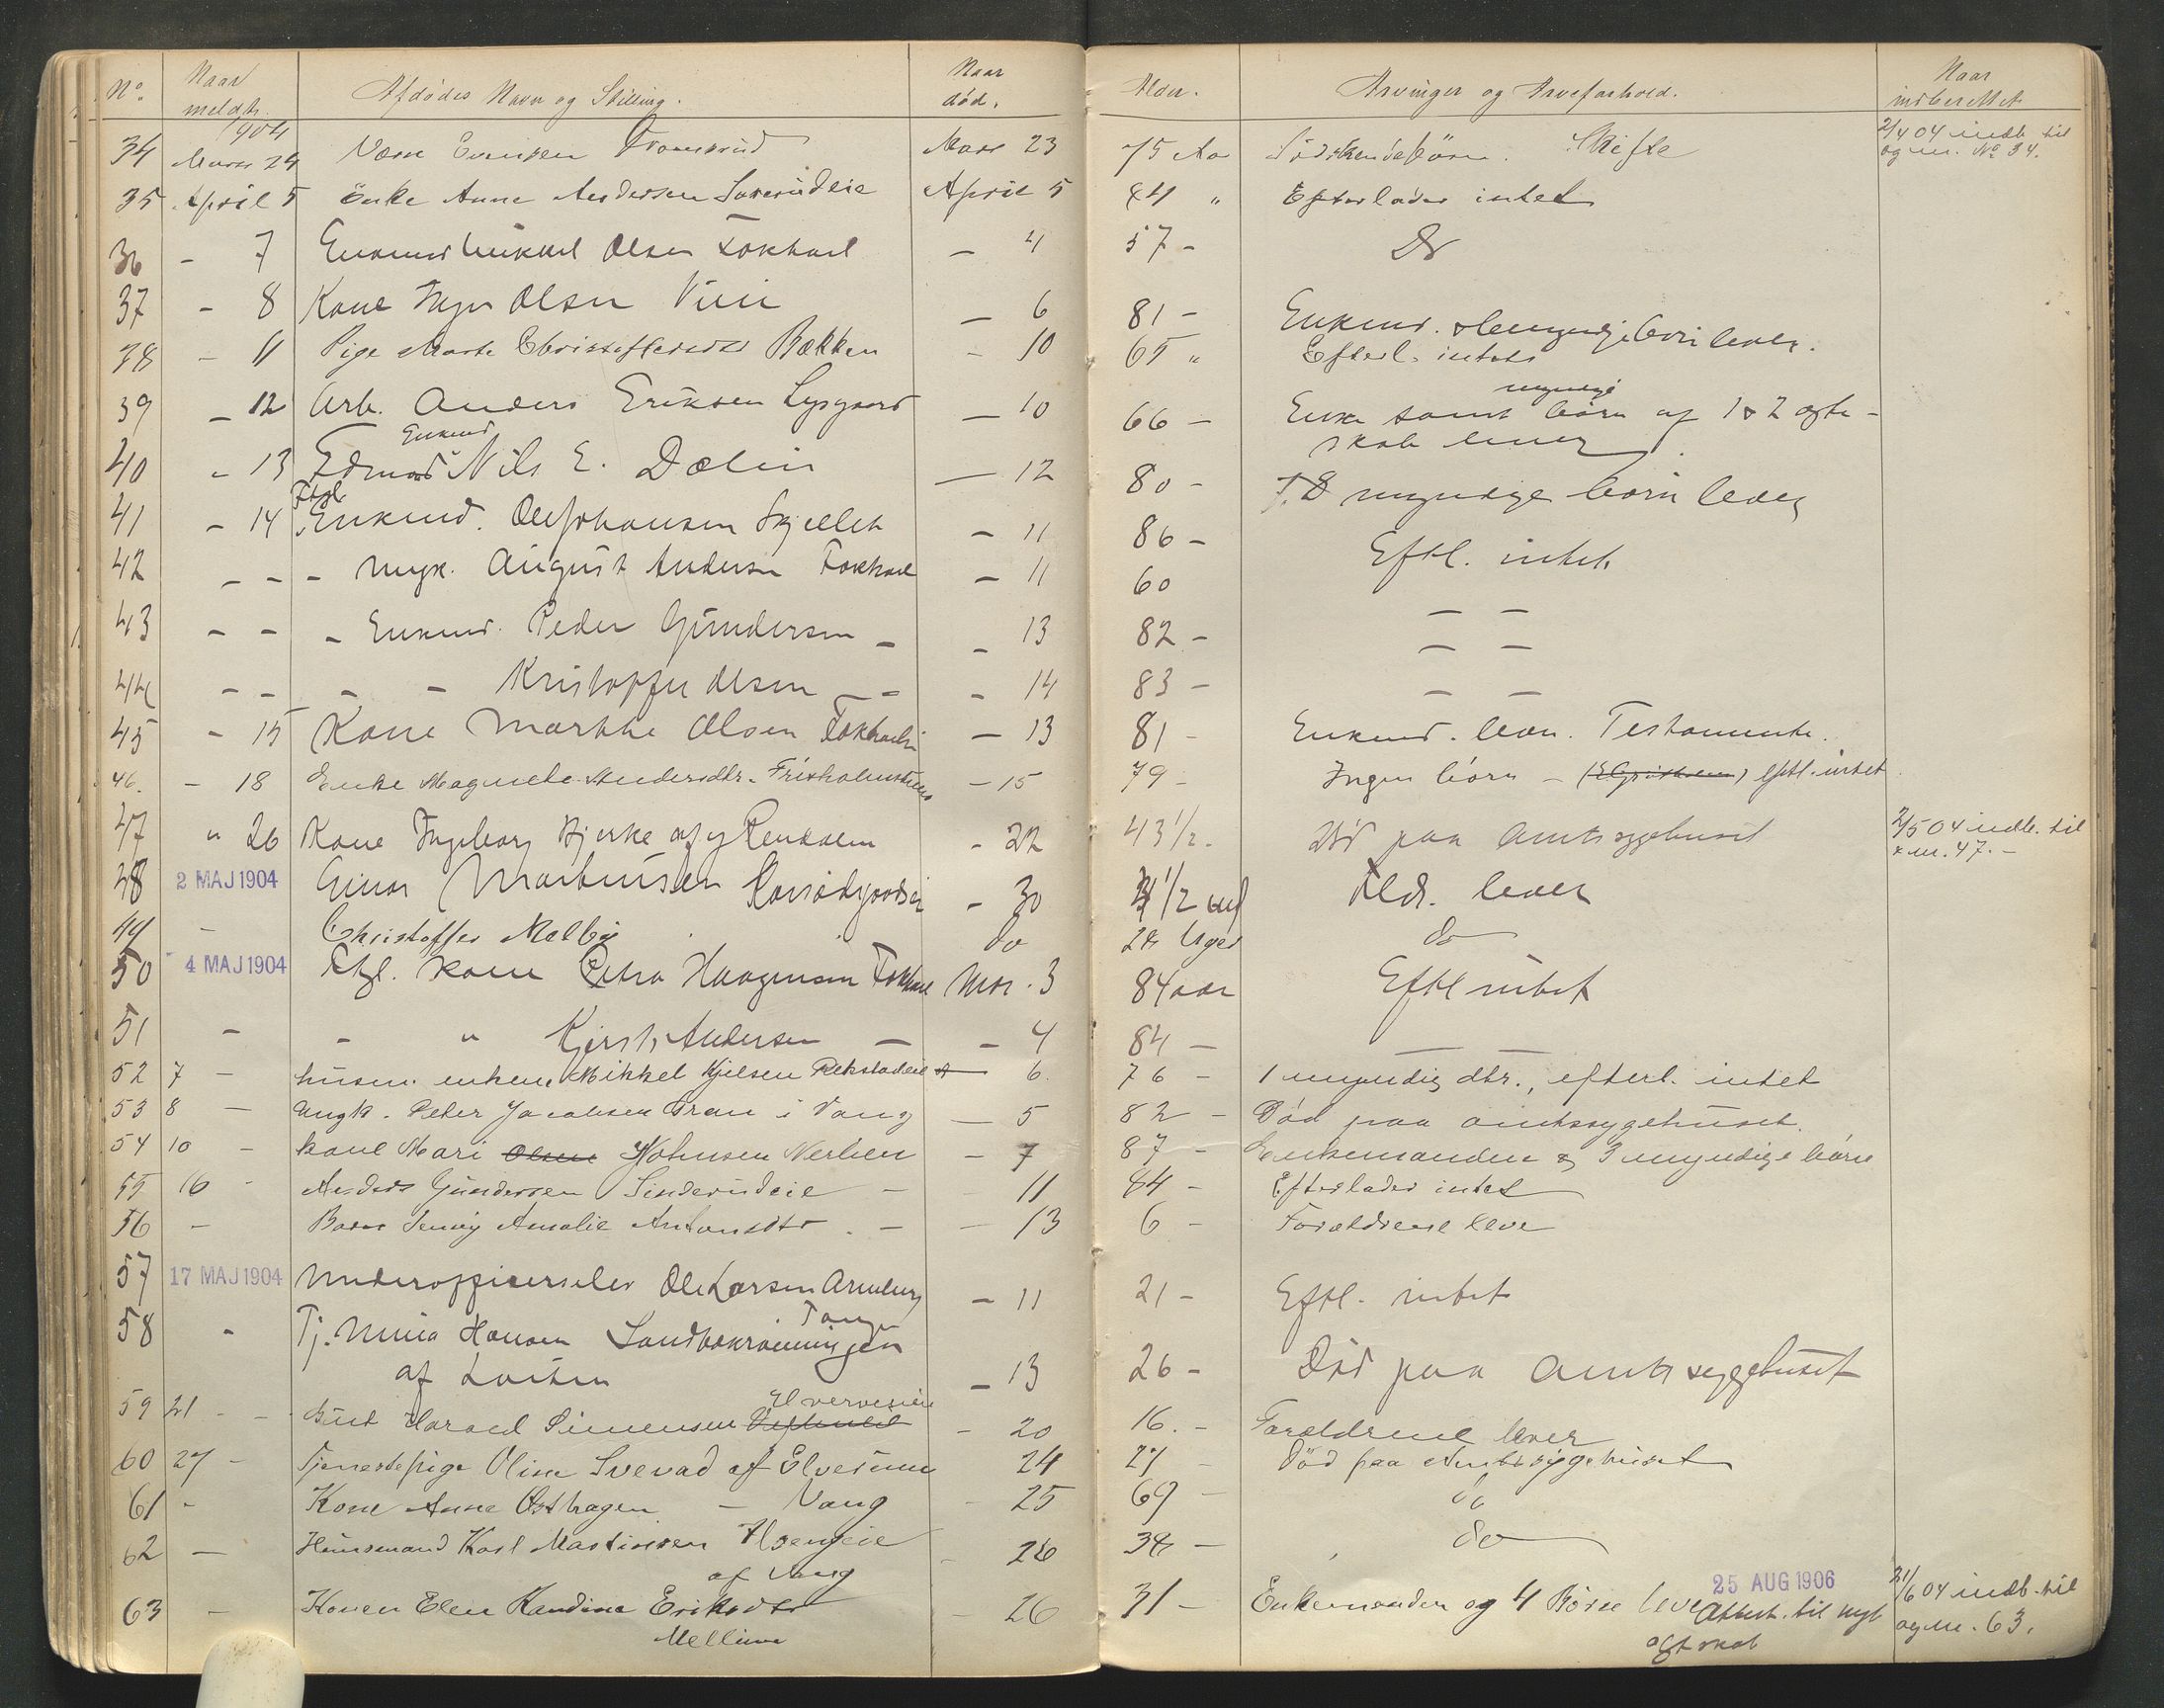 No. Naar meldt. Afdødes Navn og Stilling. Naar død. Alder. Arvinger og Arveforhold. Naar indberettet
1904
34 Mars 24 Mars 23 75 Aar Södskendebörn. Skifte 2/4 04 indb. til og m. No 34.
35 April 5 Enke Anne Andersen April 5 84 " Efterlader intet
36 - 7 Enkemd Mikkel Olsen Fokhoel - 4 57 - Do
37 - 8 Kone Inger Olsen - 6 81 - Enkemd. & myndige börn lever.
38 - 11 Pige Marte Christoffersdtr Bækken - 10 65 " Efterl. intet
39 - 12 Arb. Anders Eriksen Lysgaard - 10 66 - Enke samt myndige börn af 1 & 2 ægte-
skab lever
40 - 13 Enkemd Nils E. Dælin - 12 80 - 8 myndige börn lever
41 - 14 Ftgl. Enkemd. Ole Johansen Skjellet - 11 86 - Eftl. intet
42 - - - ungk. August Andersen Fokhoel - 11 60 - -
43 - - - Enkemd. Peder Gundersen - - 13 82 - - -
44 - - - - Kristoffer Olsen - - - 14 83 - - -
45 - 15 Kone Marthe Olsen Fokhoel - 13 81 - Enkemd. börn. Testamente.
46. - 18 Enke Magnete Andersdtr. - 15 79 - Ingen börn - eftl. intet
47 " 26 Kone Ingeborg Bjerke af Rendalen - 22 43 1/2. Död paa Amtssygehuset 2/5 04 indb. til & m. 47. -
48 2 MAJ 1904 Einar Martinsen - 30 1/2 Fldr. lever
49 - Christoffer Melby do 24 Uger do
50 4 MAJ 1904 Ftgl. Kone Petra Haagensen Fokhoel Mai. 3 84 aar Eftl intet
51 - - " Kjersti Andersen - - 4 84 - -
52 7 - husm. enkem. Mikkel Kjelsen Rekstadeie - 6. 76 - 1 myndig dtr., efterl. intet
53 8 - Ungk. Peter Jacobsen Gran i Vang - 5 82 - Död paa amtssygehuset.
54 10 - kone Mari Olsen Johnsen Nerlien - 7 87 - Enkemanden & 3 myndige börn
55 16 - Anders Gundersen Sinderudeie - - 11 84 - Efterlader intet
56 - Barn Jenny Amalie Antonsdtr. - - 13 6 - Forældrene leve
57 17 MAJ 1904 Underofficerselev Ole Larsen Arneberg - 11 21 - Eftl. intet
58 - Tj. Mina Hansen Sandbakrønningen Tange
af Løiten - 13 26 - Död paa Amtssygehuset
59 21 - - Gut Harald Simensen - 20 16. - Forældrene lever
60 27 - Tjenestepige Oline Svevad af Elverum 24 27 - Död paa Amtssygehuset
61 - Kone Anne Østhagen - Vang - 25 69 - do
62 - Husmand Karl Martinsen
af Vang - 26 34 - do
63 - Konen Elen Kandine Eriksdtr
Mellum - 26 31 - Enkemanden og 4 Börn leve 25 AUG 1906
Attest. til nyt
ægtskab 21/6 04 indb. til
og m. 63.